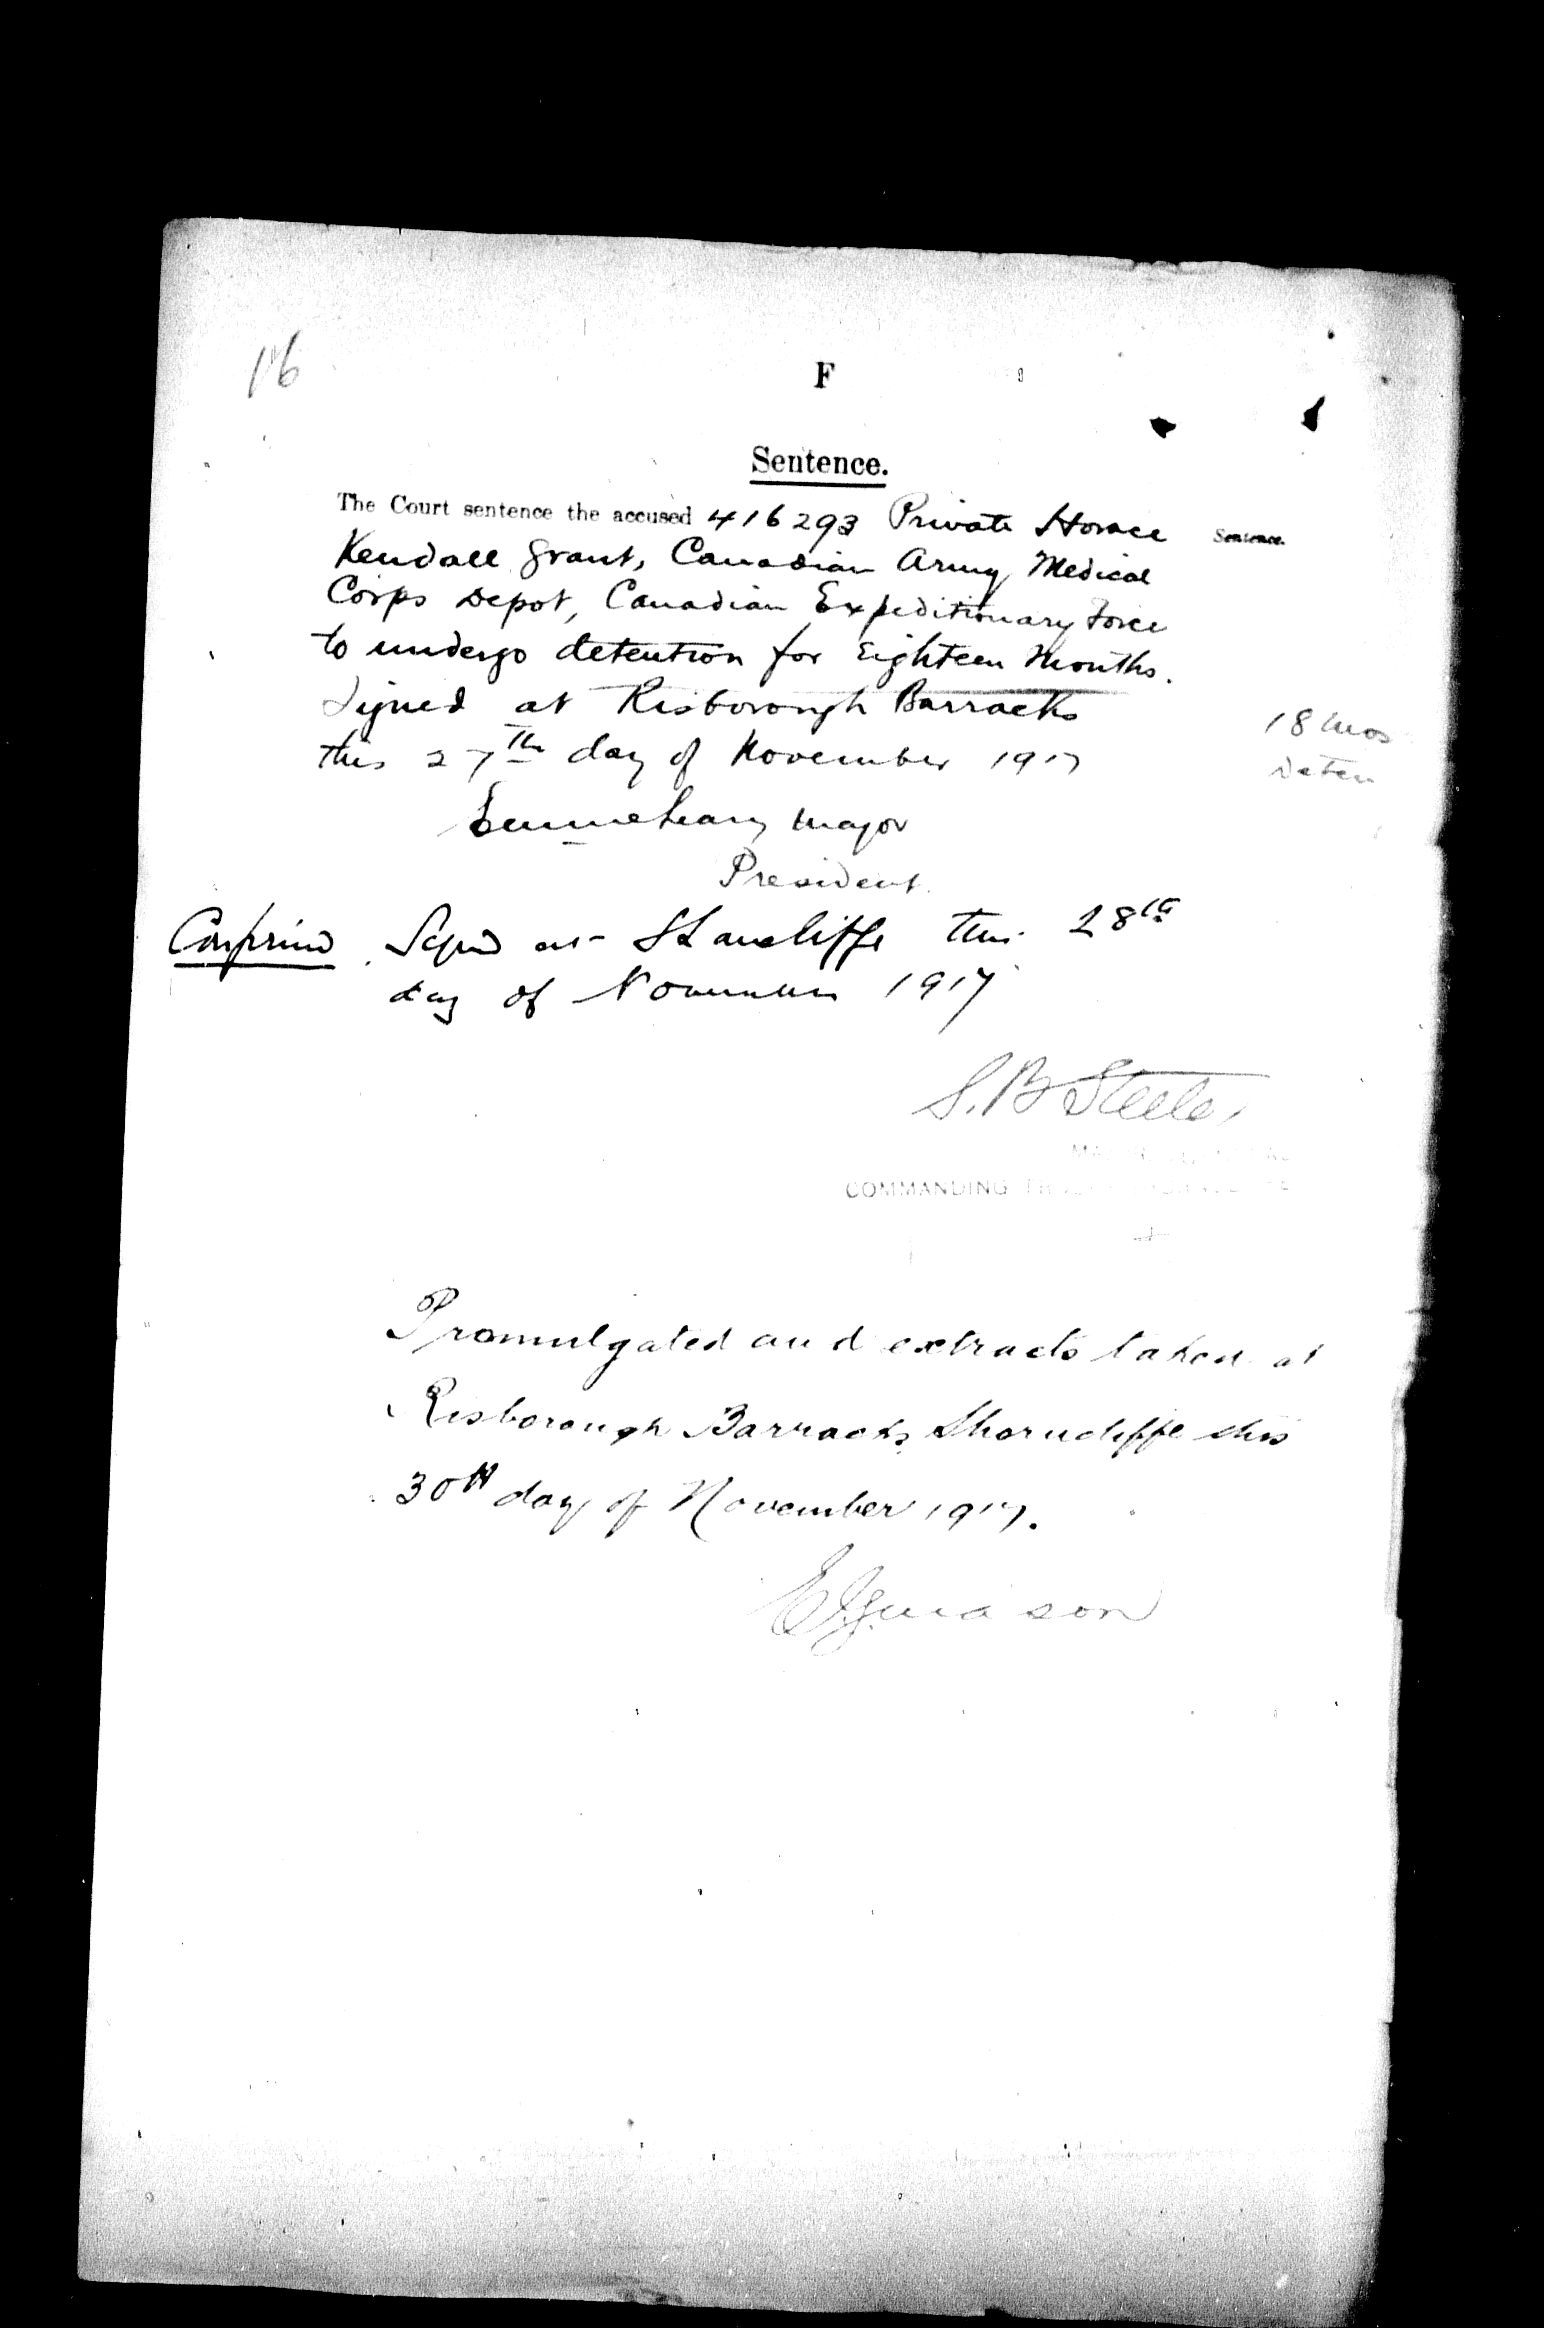 16
F
Sentence.
The Court sentence the accused 416293 Private Horace
Sentence.
Kendall Grant, Canadian Army Medical
Corps Depot, Canadian Expeditionary Force
to undergo detention for Eighteen Months.
Signed at Risborough Barracks
18 mos
this 27th day of November 1917
Deten
Major
President
Confirmed Signed at Shorncliffe this 28th
day of November 1917
S.B Steele
COMMANDING
Promulgated and extracts taken at
Risborough Barracks, Shorncliffe this
30th day of November 1917.